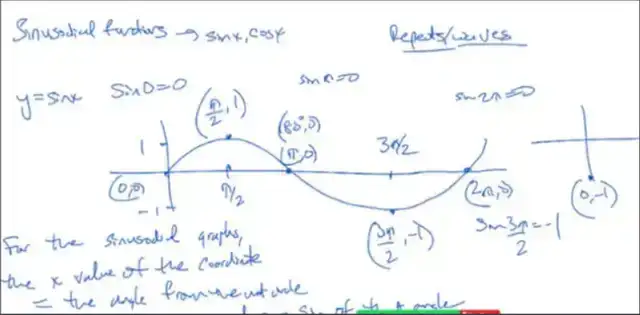 Sinusodial functions → sinx, cosx
Repeats/waves
y=sinx
sin0=0
sinπ=0
sin2π=0
(π/2, 1)
(180°, 0)
(π, 0)
3π/2
1
(0,0)
π/2
(2π, 0)
(0, -1)
-1
(3π/2, -1)
sin 3π/2 = -1
For the sinusodial graphs,
the x value of the coordinate
= the angle from the unit circle